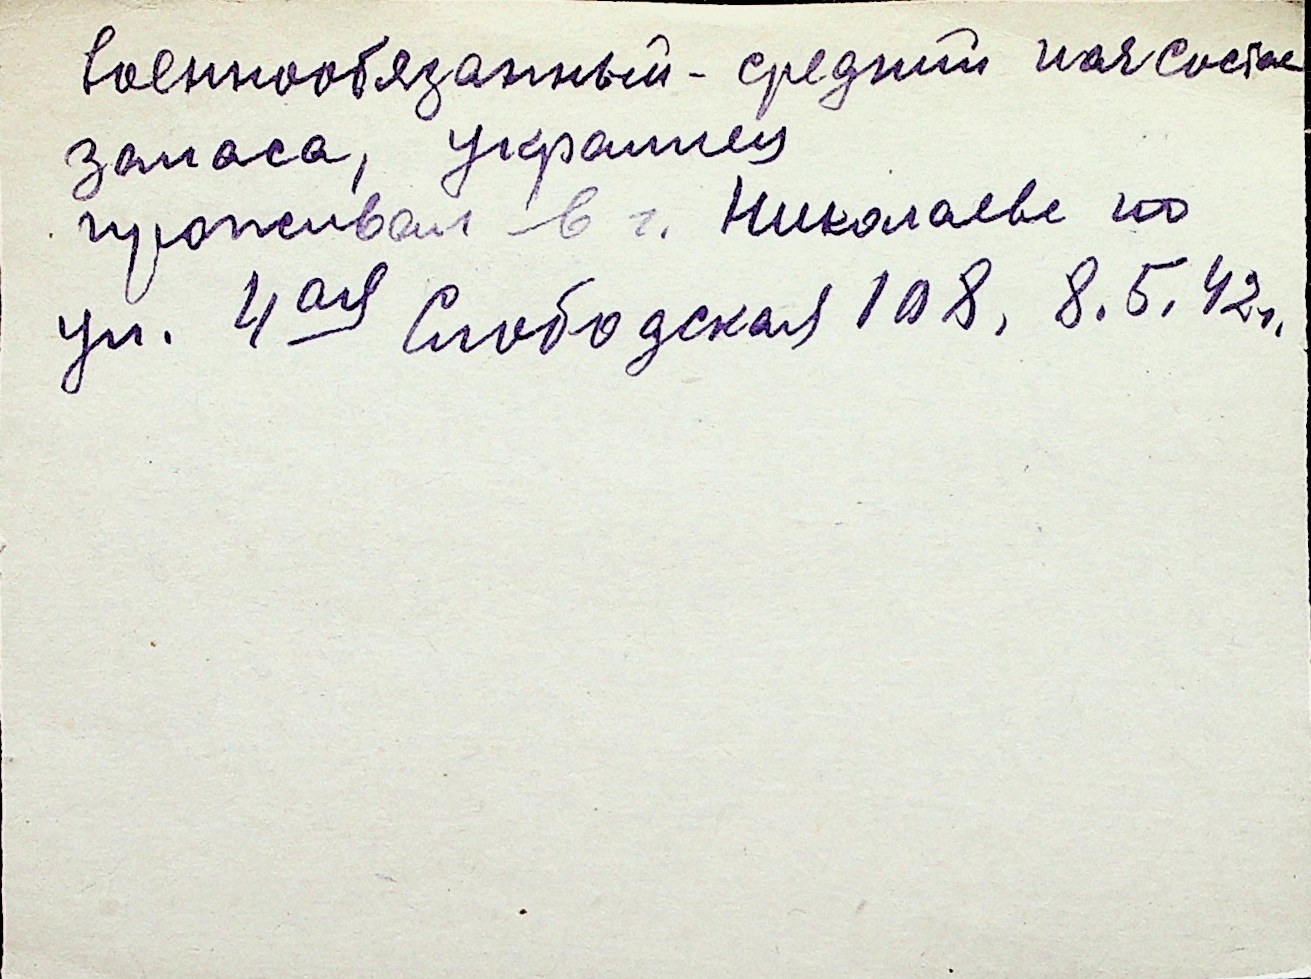 военнообязанный - средний начсостав
запаса, украинец
проживал в г. Николаеве по
ул. 4 ая Слободская 108, 8.5.42г.